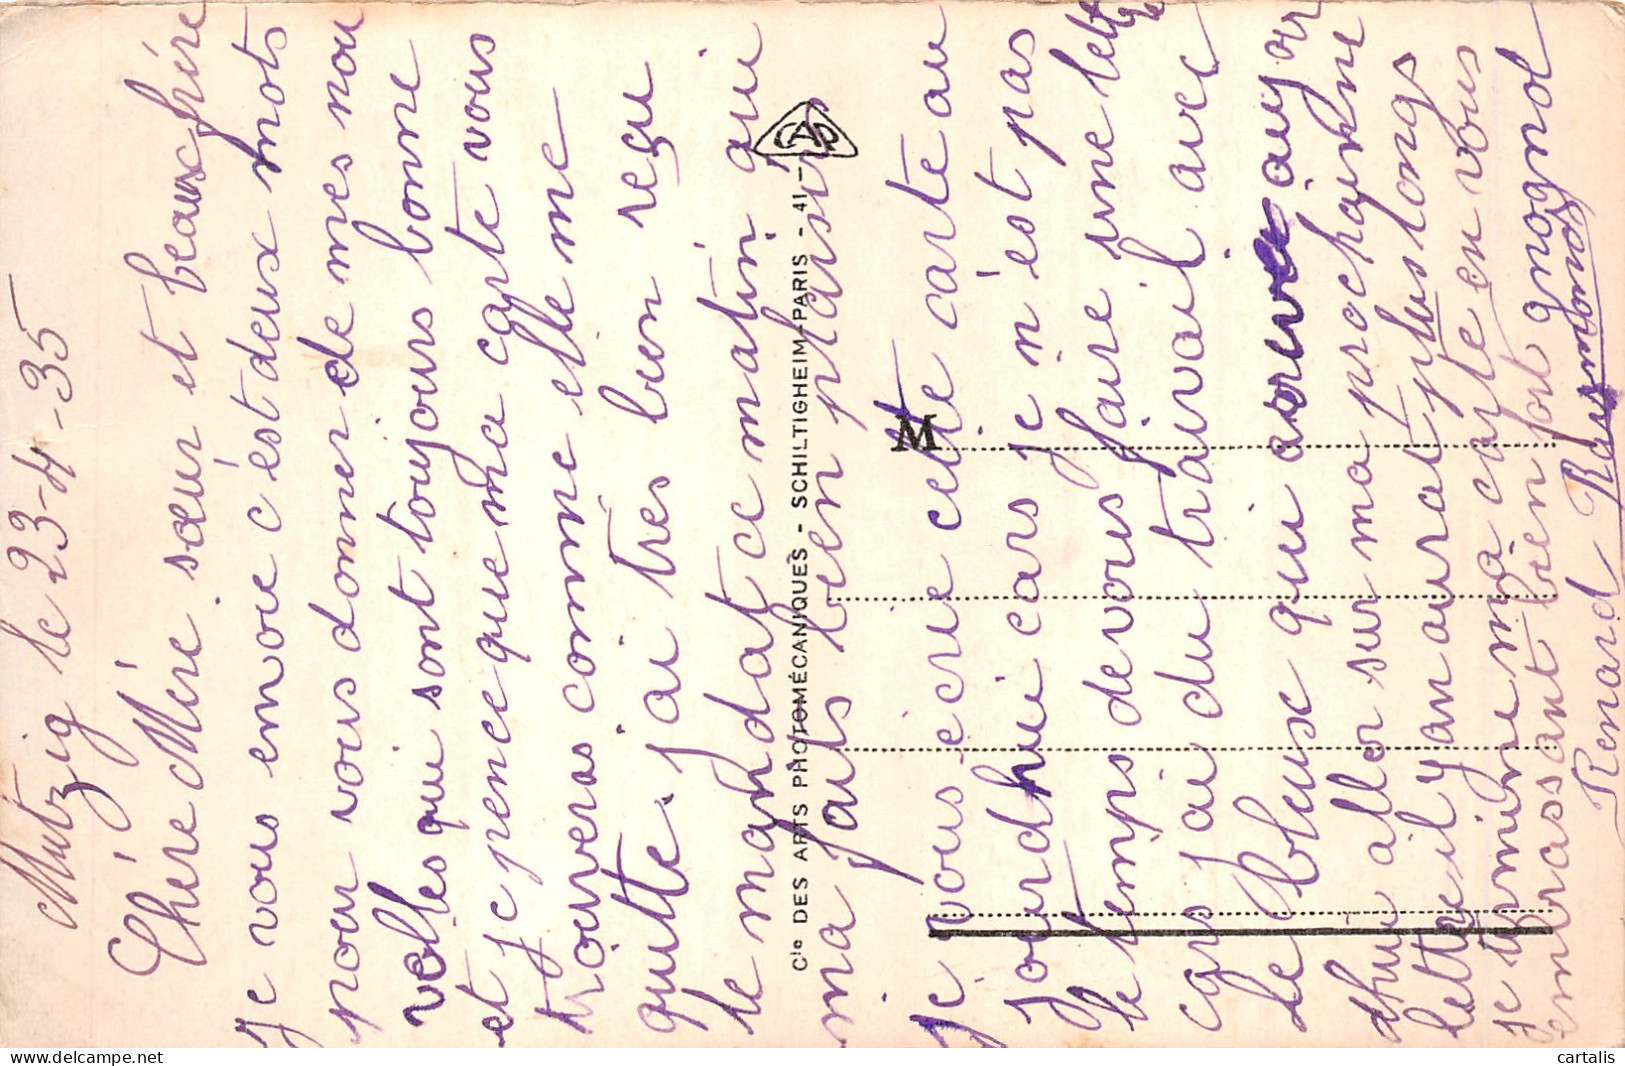 Mutzig le 23-4-35
Chère Mère sœur et beaux frére
Je vous envoie c'est deux mots
pour vous donner de mes nou
velles qui sont toujours bonne
et je pence que ma carte vous
trouveras comme elle me
quitte. j'ai très bien reçu
le mandat ce matin qui
ma fait bien plaisir
Cie DES ARTS PHOTOMÉCANIQUES - SCHILTIGHEIM-PARIS - 41 -
CAP
M
je vous écrie cette carte au
jourdhui cars je n'est pas
le temps de vous faire une lett
cars j'ai du travail avec
le bleuse qui au jor
dhui aller sur ma prochainne
lettre il y an aurat plus longs
je termine ma carte en vous
embrassant bien fort gnognol
Renard Raymond
cartalis